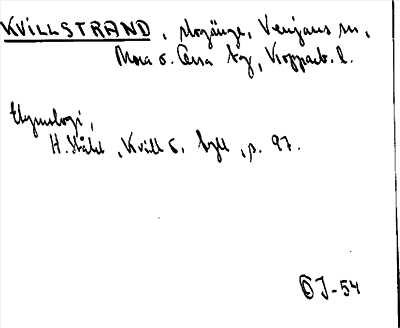 KVILLSTRAND, skogänge, Venjans sn,
Mora o. Orsa tg, Kopparb. l.
Etymologi,
H. Ståhl, Kvill o. tyll, p. 97.
OJ-54